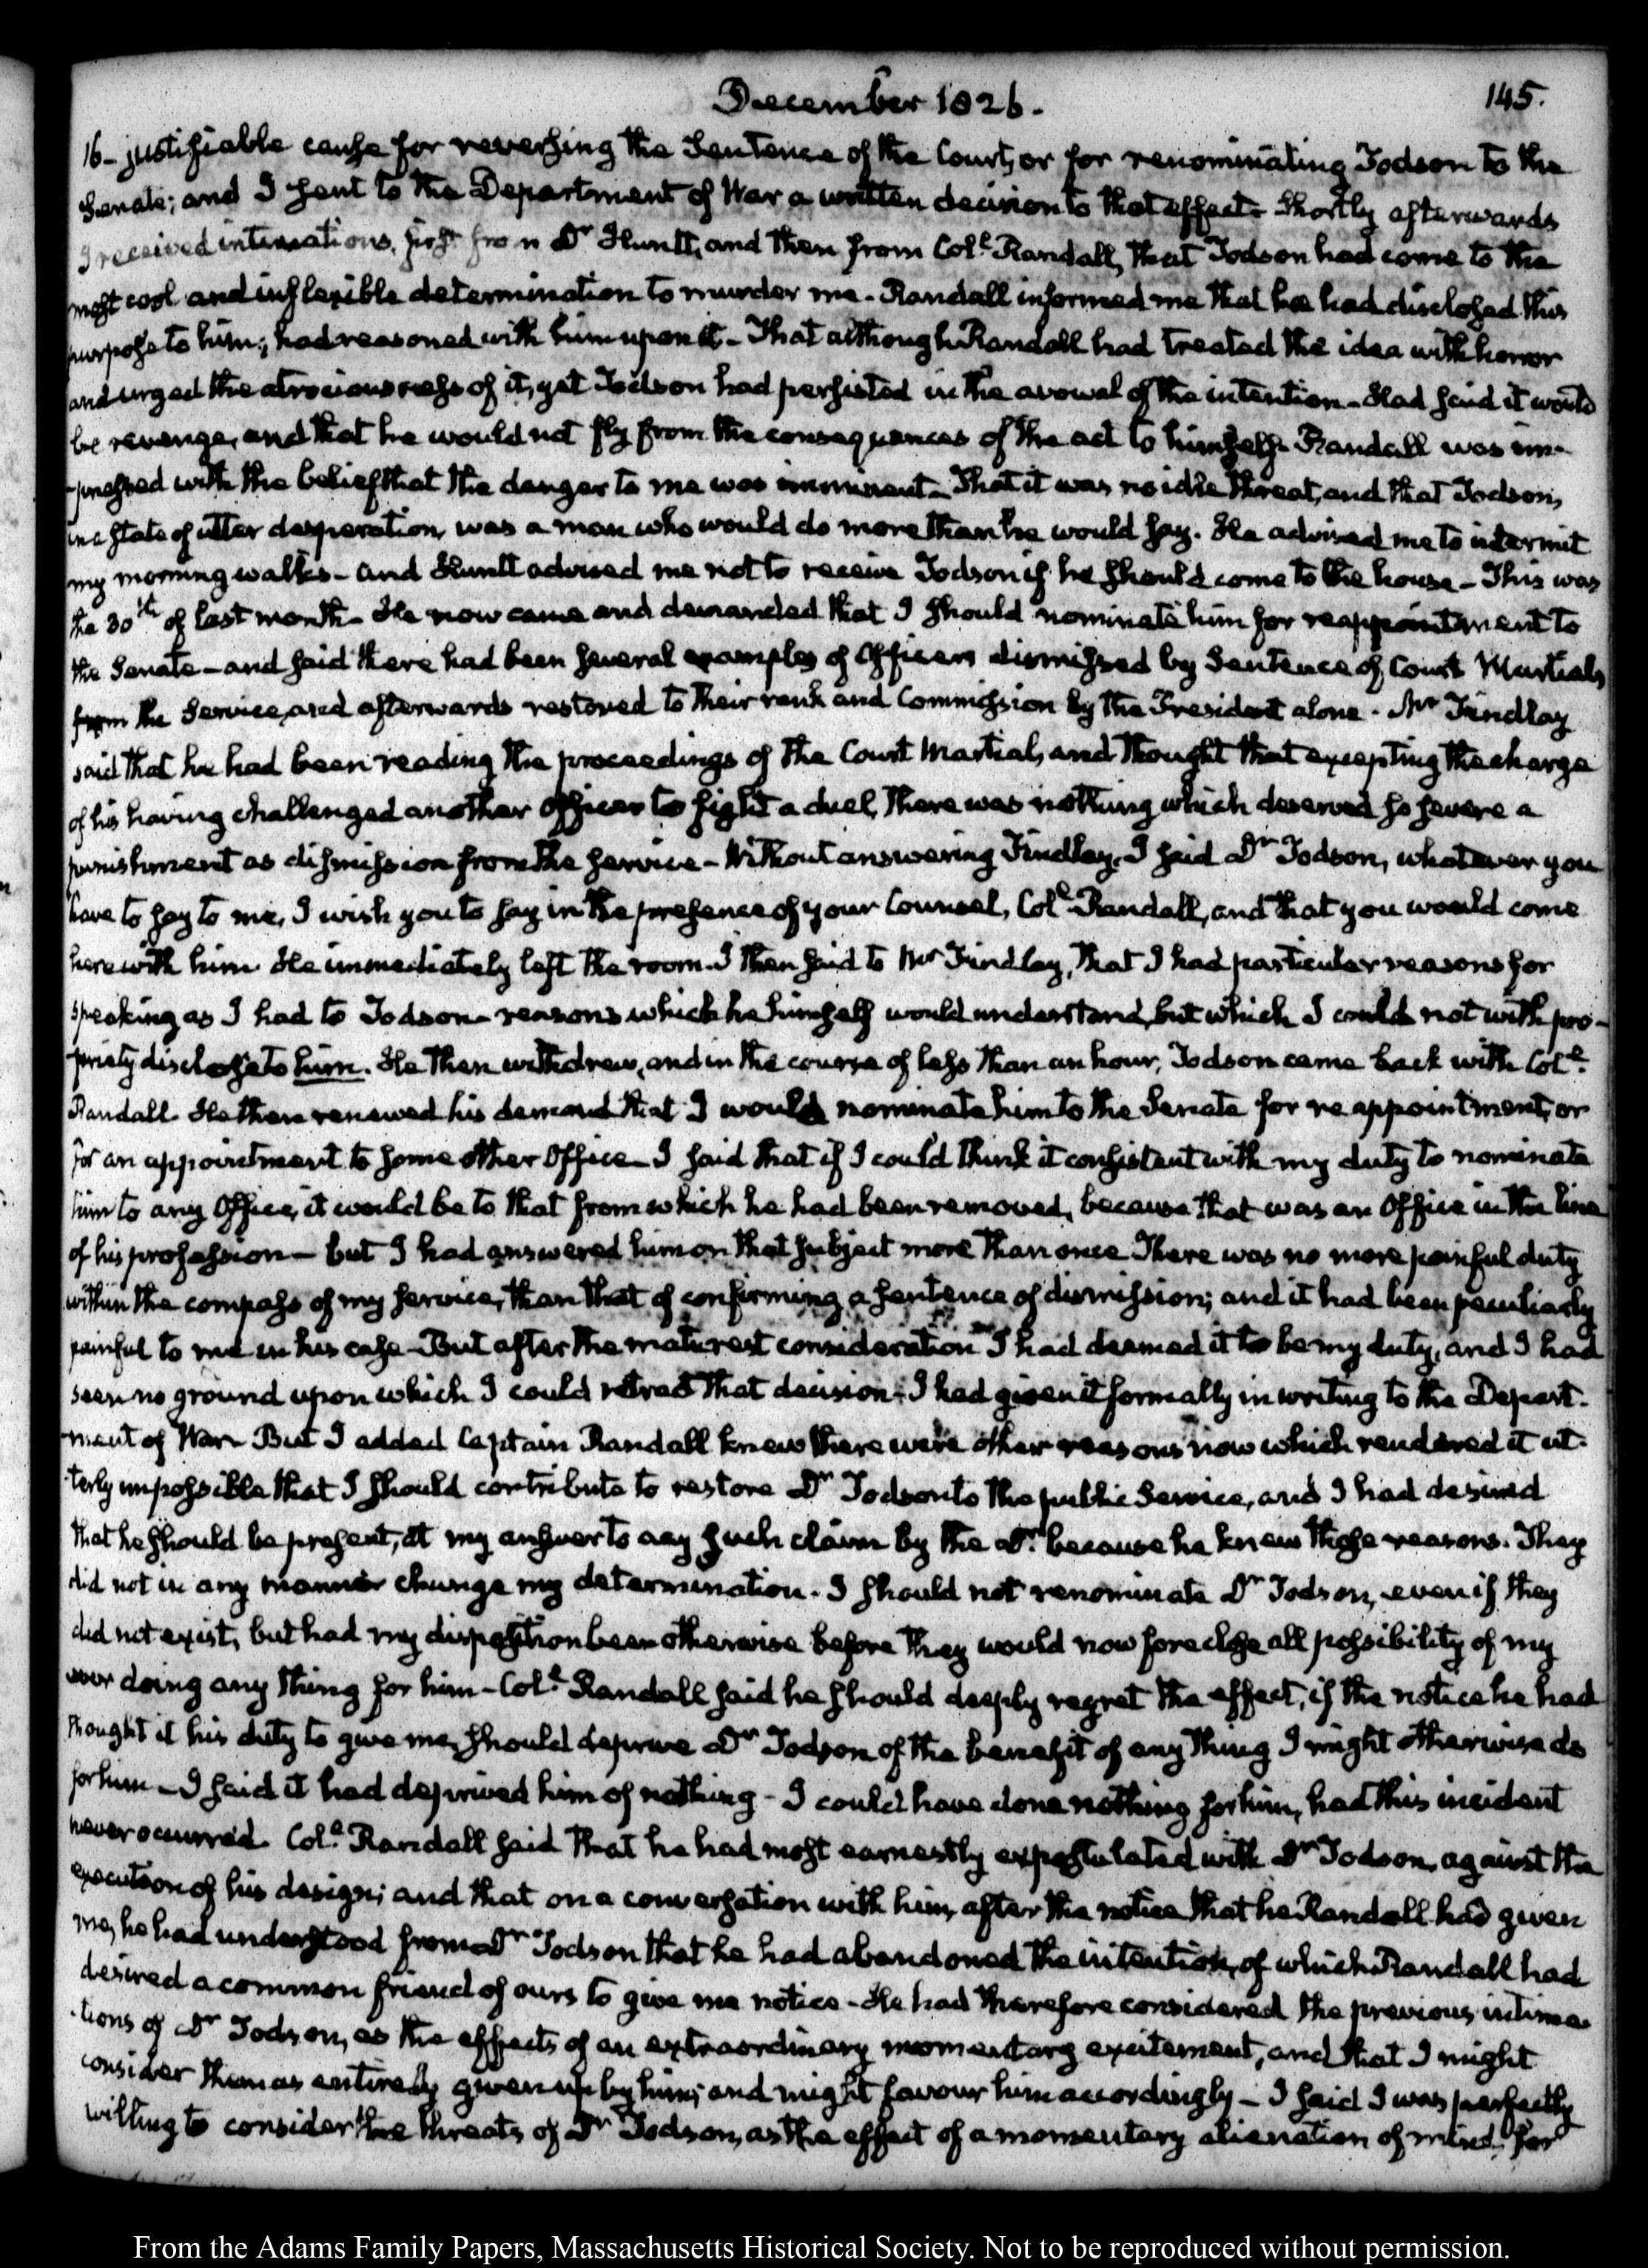 December 1826.
145.
16- justifiable cause for reversing the Sentence of the Court, or for renominating Todson to the
Senate; and I sent to the Department of War a written decision to that effect. Shortly afterwards
I received intimations, first from Dr Huntt, and then from Coll. Randall, that Todson had come to the
most cool and inflexible determination to murder me. Randall informed me that he had disclosed this
purpose to him; had reasoned with him upon it- That although Randall had treated the idea with horror
and urged the atrociousness of it, yet Todson had persisted in the avowal of the intention- Had said it would
be revenge, and that he would not fly from the consequences of the act to himself- Randall was im-
-pressed with the belief that the danger to me was imminent- That it was no idle threat, and that Todson,
in a state of utter desperation, was a man who would do more than he would say. He advised me to intermit
my morning walks- and Huntt advised me not to receive Todson if he should come to the house- This was
the 30th of last month- He now came and demanded that I should nominate him for reappointment to
the Senate- and said there had been several examples of Officers dismissed by Sentence of Court Martials
from the Service, and afterwards restored to their rank and Commission by the President alone. Mr Findlay
said that he had been reading the proceedings of the Court Martial, and thought that excepting the charge
of his having challenged another Officer to fight a duel, there was nothing which deserved so severe a
punishment as dismission from the service- Without answering Findlay, I said Dr Todson, whatever you
have to say to me, I wish you to say in the presence of your Counsel, Coll. Randall, and that you would come
here with him. He immediately left the room. I then said to Mr Findlay, that I had particular reasons for
speaking as I had to Todson- reasons which he himself would understand, but which I could not with pro-
-priety disclose to him. He then withdrew, and in the course of less than an hour, Todson came back with Coll.
Randall. He then renewed his demand that I would nominate him to the Senate for reappointment, or
for an appointment to some other Office- I said that if I could think it consistent with my duty to nominate
him to any Office, it would be to that from which he had been removed, because that was an Office in the line
of his profession- but I had answered him on that subject more than once. There was no more painful duty
within the compass of my service, than that of confirming a sentence of dismission; and it had been peculiarly
painful to me in his case- But after the maturest consideration I had deemed it to be my duty, and I had
seen no ground upon which I could retract that decision. I had given it formally in writing to the Depart-
-ment of War- But I added Captain Randall knew there were other reasons now which rendered it ut-
-terly impossible that I should contribute to restore Dr Todson to the public Service, and I had desired
that he should be present, at my answer to any such claim by the Dr. because he knew those reasons. They
did not in any manner change my determination. I should not renominate Dr Todson, even if they
did not exist, but had my disposition been otherwise before they would now foreclose all possibility of my
ever doing any thing for him- Coll. Randall said he should deeply regret the effect, if the notice he had
thought it his duty to give me, should deprive Dr Todson of the benefit of any thing I might otherwise do
for him- I said it had deprived him of nothing- I could have done nothing for him, had this incident
never occurred. Coll. Randall said that he had most earnestly expostulated with Dr Todson, against the
execution of his design; and that on a conversation with him, after the notice that he Randall had given
me, he had understood from Dr Todson that he had abandoned the intention, of which Randall had
desired a common friend of ours to give me notice- He had therefore considered the previous intima-
-tions of Dr Todson, as the effects of an extraordinary momentary excitement, and that I might
consider them as entirely given up by him; and might favour him accordingly- I said I was perfectly
willing to consider the threats of Dr Todson, as the effect of a momentary alienation of mind, for
From the Adams Family Papers, Massachusetts Historical Society. Not to be reproduced without permission.